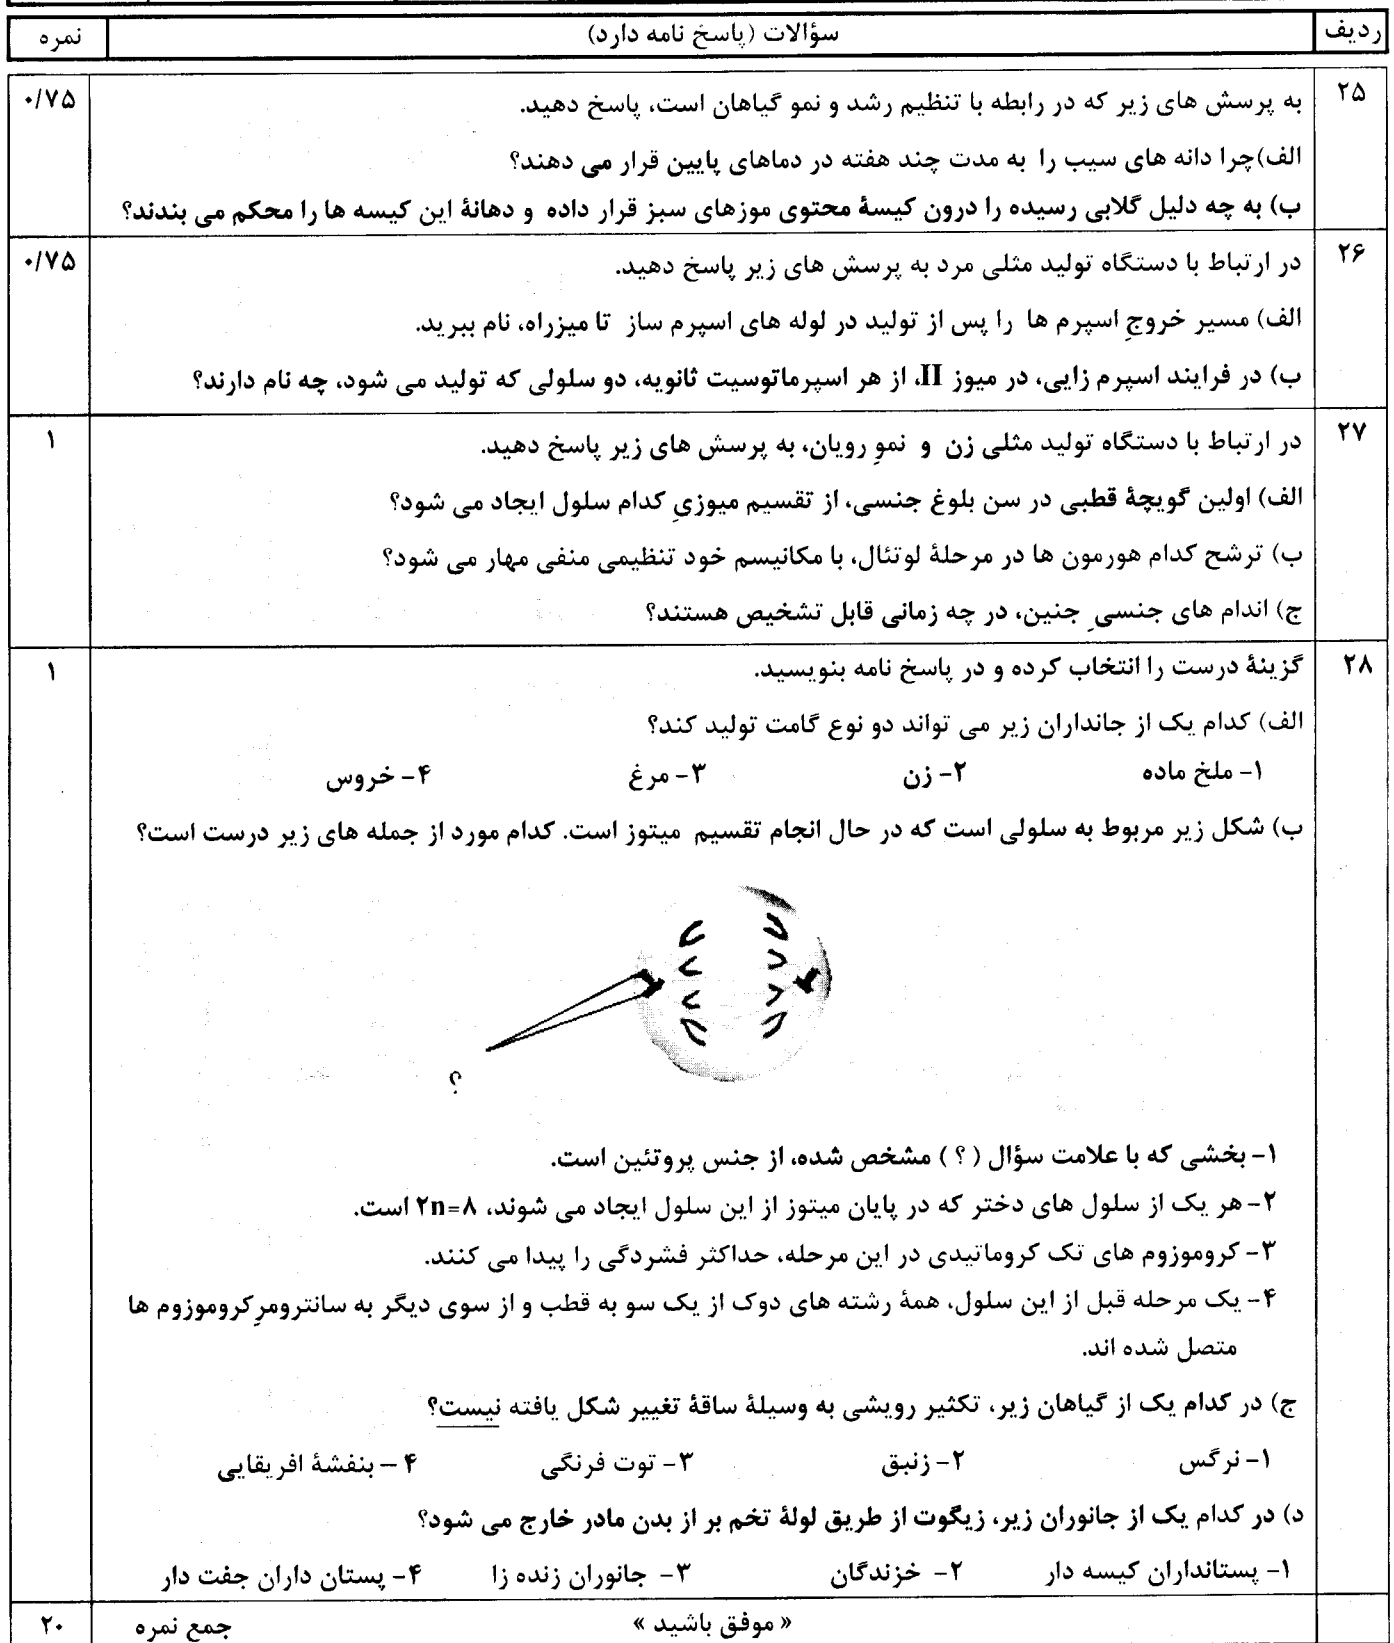 ردیف سؤالات (پاسخ نامه دارد) نمره
۲۵ به پرسش های زیر که در رابطه با تنظیم رشد و نمو گیاهان است، پاسخ دهید. ۰/۷۵
الف)چرا دانه های سیب را به مدت چند هفته در دماهای پایین قرار می دهند؟
ب) به چه دلیل گلابی رسیده را درون کیسهٔ محتوی موزهای سبز قرار داده و دهانهٔ این کیسه ها را محکم می بندند؟
۲۶ در ارتباط با دستگاه تولید مثلی مرد به پرسش های زیر پاسخ دهید. ۰/۷۵
الف) مسیر خروجِ اسپرم ها را پس از تولید در لوله های اسپرم ساز تا میزراه، نام ببرید.
ب) در فرایند اسپرم زایی، در میوز II، از هر اسپرماتوسیت ثانویه، دو سلولی که تولید می شود، چه نام دارند؟
۲۷ در ارتباط با دستگاه تولید مثلی زن و نموِ رویان، به پرسش های زیر پاسخ دهید. ۱
الف) اولین گویچهٔ قطبی در سن بلوغ جنسی، از تقسیم میوزیِ کدام سلول ایجاد می شود؟
ب) ترشح کدام هورمون ها در مرحلهٔ لوتئال، با مکانیسم خود تنظیمی منفی مهار می شود؟
ج) اندام های جنسیِ جنین، در چه زمانی قابل تشخیص هستند؟
۲۸ گزینهٔ درست را انتخاب کرده و در پاسخ نامه بنویسید. ۱
الف) کدام یک از جانداران زیر می تواند دو نوع گامت تولید کند؟
۱- ملخ ماده ۲- زن ۳- مرغ ۴- خروس
ب) شکل زیر مربوط به سلولی است که در حال انجام تقسیم میتوز است. کدام مورد از جمله های زیر درست است؟
؟
۱- بخشی که با علامت سؤال ( ؟ ) مشخص شده، از جنس پروتئین است.
۲- هر یک از سلول های دختر که در پایان میتوز از این سلول ایجاد می شوند، ۲n=۸ است.
۳- کروموزوم های تک کروماتیدی در این مرحله، حداکثر فشردگی را پیدا می کنند.
۴- یک مرحله قبل از این سلول، همهٔ رشته های دوک از یک سو به قطب و از سوی دیگر به سانترومرِکروموزوم ها
متصل شده اند.
ج) در کدام یک از گیاهان زیر، تکثیر رویشی به وسیلهٔ ساقهٔ تغییر شکل یافته نیست؟
۱- نرگس ۲- زنبق ۳- توت فرنگی ۴ – بنفشهٔ افریقایی
د) در کدام یک از جانوران زیر، زیگوت از طریق لولهٔ تخم بر از بدن مادر خارج می شود؟
۱- پستانداران کیسه دار ۲- خزندگان ۳- جانوران زنده زا ۴- پستان داران جفت دار
« موفق باشید » جمع نمره ۲۰